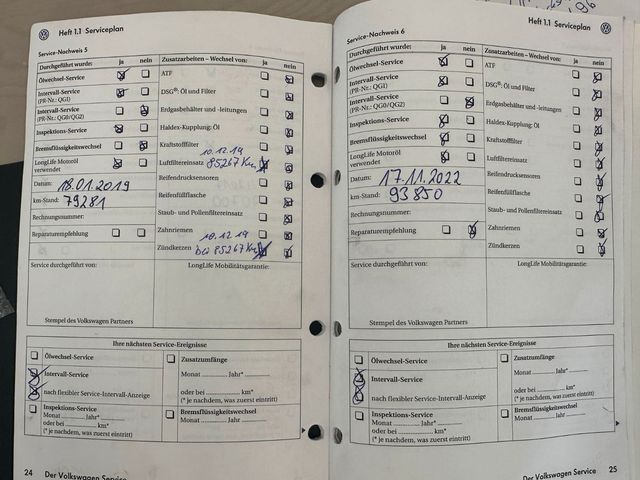 Heft 1.1 Serviceplan
Service-Nachweis 5
Durchgeführt wurde: ja nein
Ölwechsel-Service
Intervall-Service
(PR-Nr.: QGI)
Intervall-Service
(PR-Nr.: QG0/QG2)
Inspektions-Service
Bremsflüssigkeitswechsel
LongLife Motoröl
verwendet
Datum: 18.01.2019
km-Stand: 79281
Rechnungsnummer:
Reparaturempfehlung
Zusatzarbeiten – Wechsel von: ja nein
ATF
DSG®: Öl und Filter
Erdgasbehälter und -leitungen
Haldex-Kupplung: Öl
Kraftstofffilter
10.12.19
Luftfiltereinsatz 85267 Km
Reifendrucksensoren
Reifenfüllflasche
Staub- und Pollenfiltereinsatz
Zahnriemen 10.12.19
Zündkerzen bei 85267 Km
Service durchgeführt von:
LongLife Mobilitätsgarantie:
Stempel des Volkswagen Partners
Ihre nächsten Service-Ereignisse
Ölwechsel-Service
Intervall-Service
nach flexibler Service-Intervall-Anzeige
Inspektions-Service
Monat Jahr*
oder bei km*
(* je nachdem, was zuerst eintritt)
Zusatzumfänge
Monat Jahr*
oder bei km*
(* je nachdem, was zuerst eintritt)
Bremsflüssigkeitswechsel
Monat Jahr
24 Der Volkswagen Service
Heft 1.1 Serviceplan
Service-Nachweis 6
Durchgeführt wurde: ja nein
Ölwechsel-Service
Intervall-Service
(PR-Nr.: QGI)
Intervall-Service
(PR-Nr.: QG0/QG2)
Inspektions-Service
Bremsflüssigkeitswechsel
LongLife Motoröl
verwendet
Datum: 17.11.2022
km-Stand: 93850
Rechnungsnummer:
Reparaturempfehlung
Zusatzarbeiten – Wechsel von: ja nein
ATF
DSG®: Öl und Filter
Erdgasbehälter und -leitungen
Haldex-Kupplung: Öl
Kraftstofffilter
Luftfiltereinsatz
Reifendrucksensoren
Reifenfüllflasche
Staub- und Pollenfiltereinsatz
Zahnriemen
Zündkerzen
Service durchgeführt von:
LongLife Mobilitätsgarantie:
Stempel des Volkswagen Partners
Ihre nächsten Service-Ereignisse
Ölwechsel-Service
Intervall-Service
nach flexibler Service-Intervall-Anzeige
Inspektions-Service
Monat Jahr*
oder bei km*
(* je nachdem, was zuerst eintritt)
Zusatzumfänge
Monat Jahr*
oder bei km*
(* je nachdem, was zuerst eintritt)
Bremsflüssigkeitswechsel
Monat Jahr
Der Volkswagen Service 25